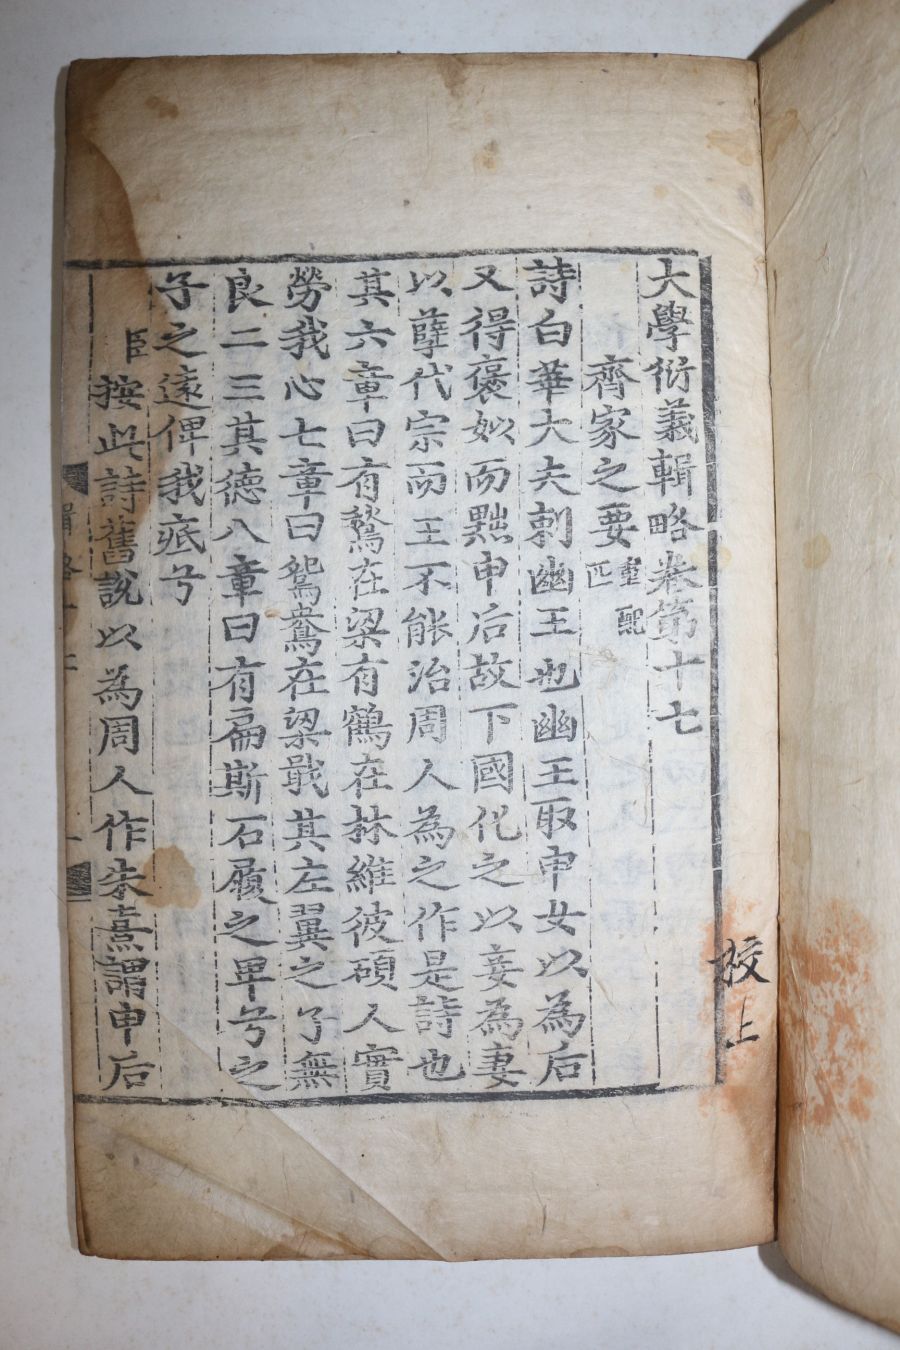 大學衍義輯略卷第十七
齊家之要重配匹
詩白華大夫刺幽王也幽王取申女以為后
又得褒姒而黜申后故下國化之以妾為妻
以孽代宗而王不能治周人為之作是詩也
其六章曰有鶖在梁有鶴在林維彼碩人實
勞我心七章曰鴛鴦在梁戢其左翼之子無
良二三其德八章曰有扁斯石履之卑兮之
子之遠俾我疧兮
臣按此詩舊說以為周人作朱熹謂申后
校上